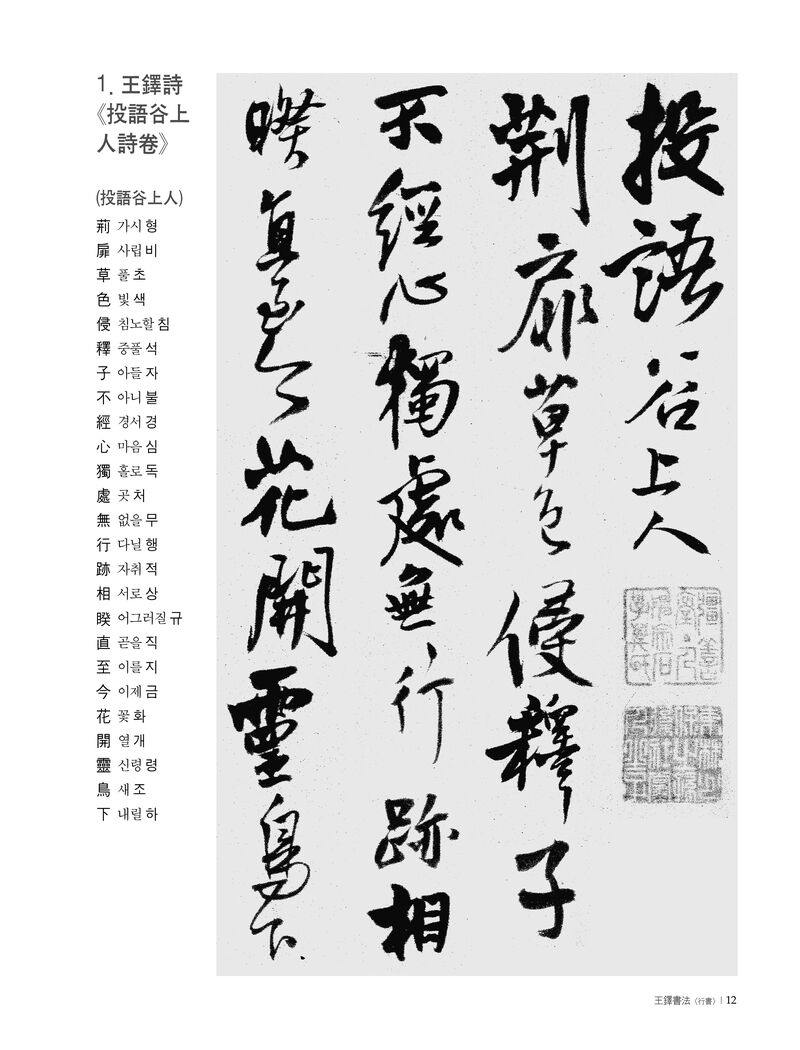 1. 王鐸詩
《投語谷上
人詩卷》
(投語谷上人)
荊 가시 형
扉 사립 비
草 풀 초
色 빛 색
侵 침노할 침
釋 중풀 석
子 아들 자
不 아니 불
經 경서 경
心 마음 심
獨 홀로 독
處 곳 처
無 없을 무
行 다닐 행
跡 자취 적
相 서로 상
睽 어그러질 규
直 곧을 직
至 이를 지
今 이제 금
花 꽃 화
開 열 개
靈 신령 령
鳥 새 조
下 내릴 하
投語谷上人
荊扉草色侵釋子
不經心獨處無行跡相
睽直至今花開靈鳥下
王鐸書法 (行書) | 12